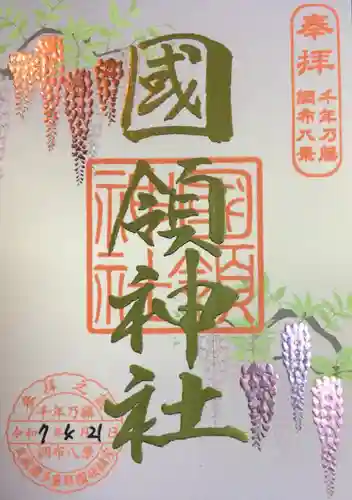 奉拝
千年乃藤
調布八景
國領神社
國領
神社
千年乃藤
令和7年4月21日
調布八景